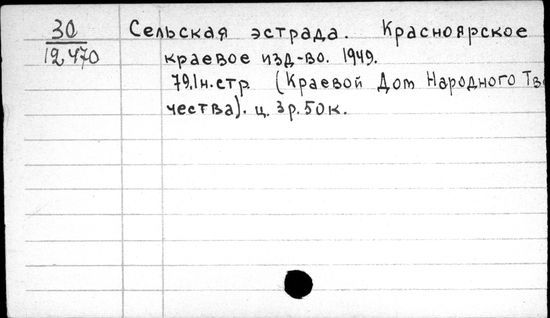 30
12470
Сельская эстрада. Красноярское
краевое изд-во. 1949.
79.1н.стр (Краевой Дом Народного Тво
чества). ц. 3р.50к.